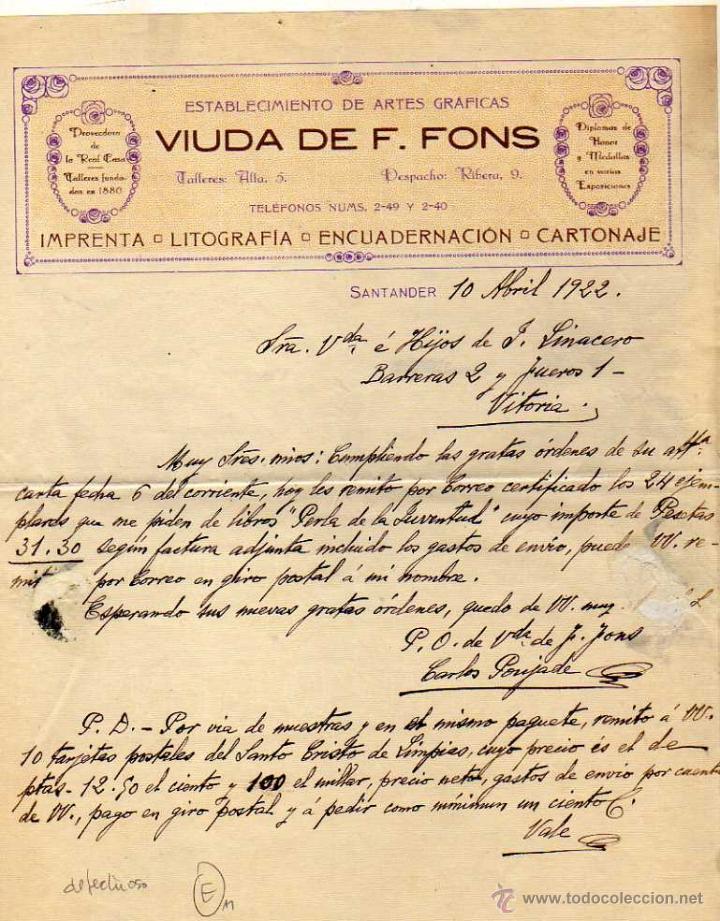 ESTABLECIMIENTO DE ARTES GRÁFICAS
VIUDA DE F. FONS
Proveedora
de
la Real Casa
Talleres funda-
dos en 1880
Talleres: Alta, 5. Despacho: Ribera, 9.
Diplomas de
Honor
y Medallas
en varias
Exposiciones
TELÉFONOS NUMS. 2-49 Y 2-40
IMPRENTA LITOGRAFÍA ENCUADERNACIÓN CARTONAJE
SANTANDER 10 Abril 1922.
Sra. Vda é Hijos de J. Linacero
Barreras 2 y Fueros 1-
Vitoria.
Muy Sres. mios: Cumpliendo las gratas órdenes de su attª
carta fecha 6 del corriente, hoy les remito por Correo certificado los 24 ejem-
plares que me piden de libros "Perla de la Juventud" cuyo importe de Pesetas
31.30 según factura adjunta incluido los gastos de envio, puede VV. re-
mit por Correo en giro postal á mi nombre.
Esperando sus nuevas gratas órdenes, quedo de VV. muy
P. O. de Vda. de F. Fons
Carlos Poujade
P. D.- Por via de muestras y en el mismo paquete, remito á VV.
10 tarjetas postales del Santo Cristo de Limpias, cuyo precio és el de
ptas. 12.50 el ciento y 100 el millar, precio neto, gastos de envio por cuenta
de VV., pago en giro postal y á pedir como minimun un ciento
Vale
defectuoso
E
www.todocoleccion.net